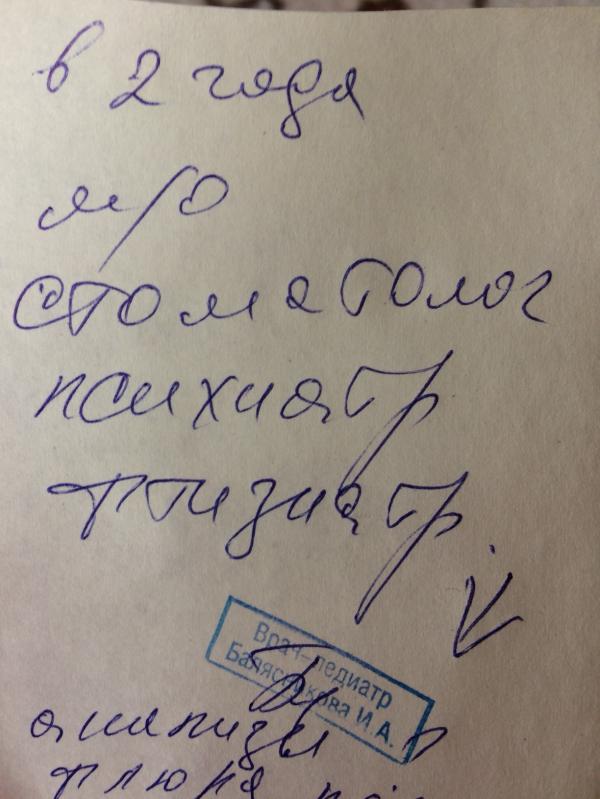 в 2 года
м/о
стоматолог
психиатр
фтизиатр
Врач-педиатр
Балясникова И.А.
анализы
флюра